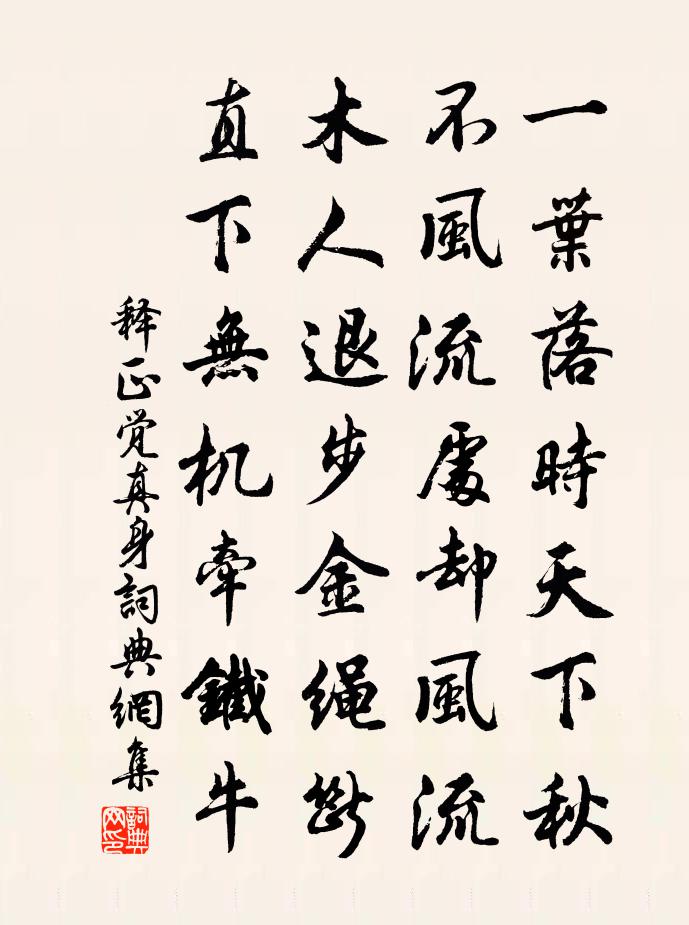 一葉落時天下秋
不風流處却風流
木人退步金繩斷
直下無机牽鐵牛
释正觉真身詞典網集
詞典
网印